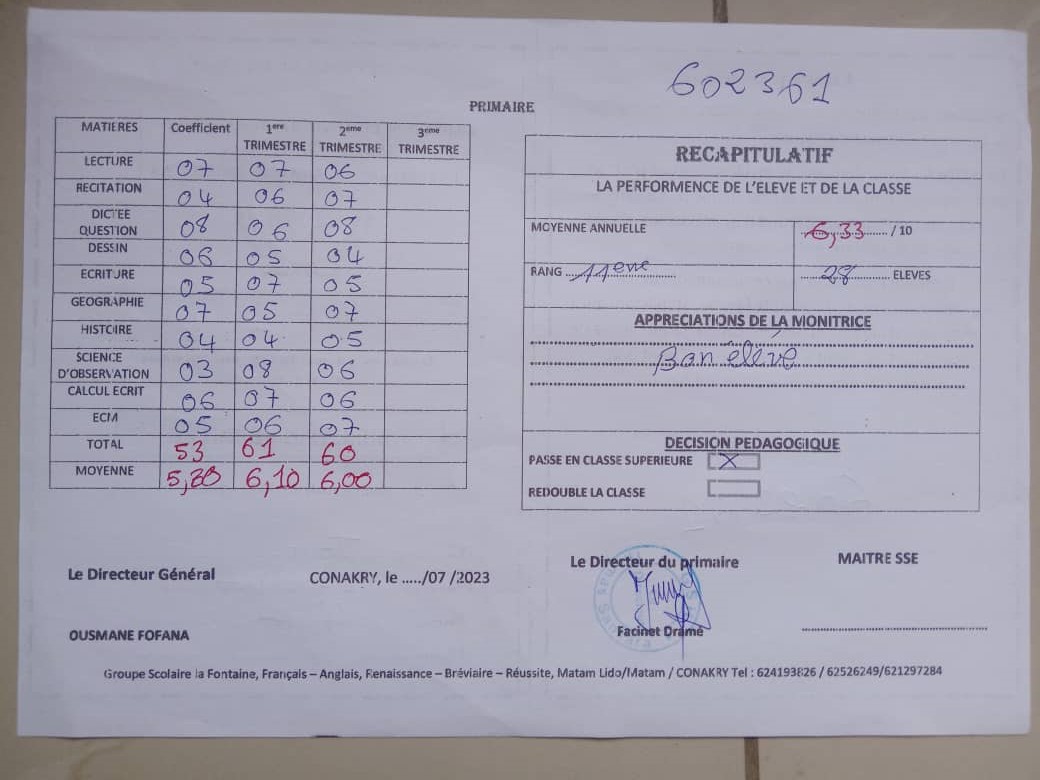 602361
PRIMAIRE
MATIERES Coefficient 1ere TRIMESTRE 2eme TRIMESTRE 3eme TRIMESTRE
LECTURE 07 07 06
RECITATION 04 06 07
DICTEE QUESTION 08 06 08
DESSIN 06 05 04
ECRITURE 05 07 05
GEOGRAPHIE 07 05 07
HISTOIRE 04 04 05
SCIENCE D'OBSERVATION 03 08 06
CALCUL ECRIT 06 07 06
ECM 05 06 07
TOTAL 53 61 60
MOYENNE 5,30 6,10 6,00
RECAPITULATIF
LA PERFORMENCE DE L'ELEVE ET DE LA CLASSE
MOYENNE ANNUELLE 6,33 / 10
RANG 11eme 28 ELEVES
APPRECIATIONS DE LA MONITRICE
Bon élève
DECISION PEDAGOGIQUE
PASSE EN CLASSE SUPERIEURE X
REDOUBLE LA CLASSE
Le Directeur Général
CONAKRY, le ...../07 /2023
Le Directeur du primaire
MAITRE SSE
OUSMANE FOFANA
Facinet Dramé
Groupe Scolaire la Fontaine, Français – Anglais, Renaissance – Bréviaire – Réussite, Matam Lido/Matam / CONAKRY Tel : 624193826 / 62526249/621297284